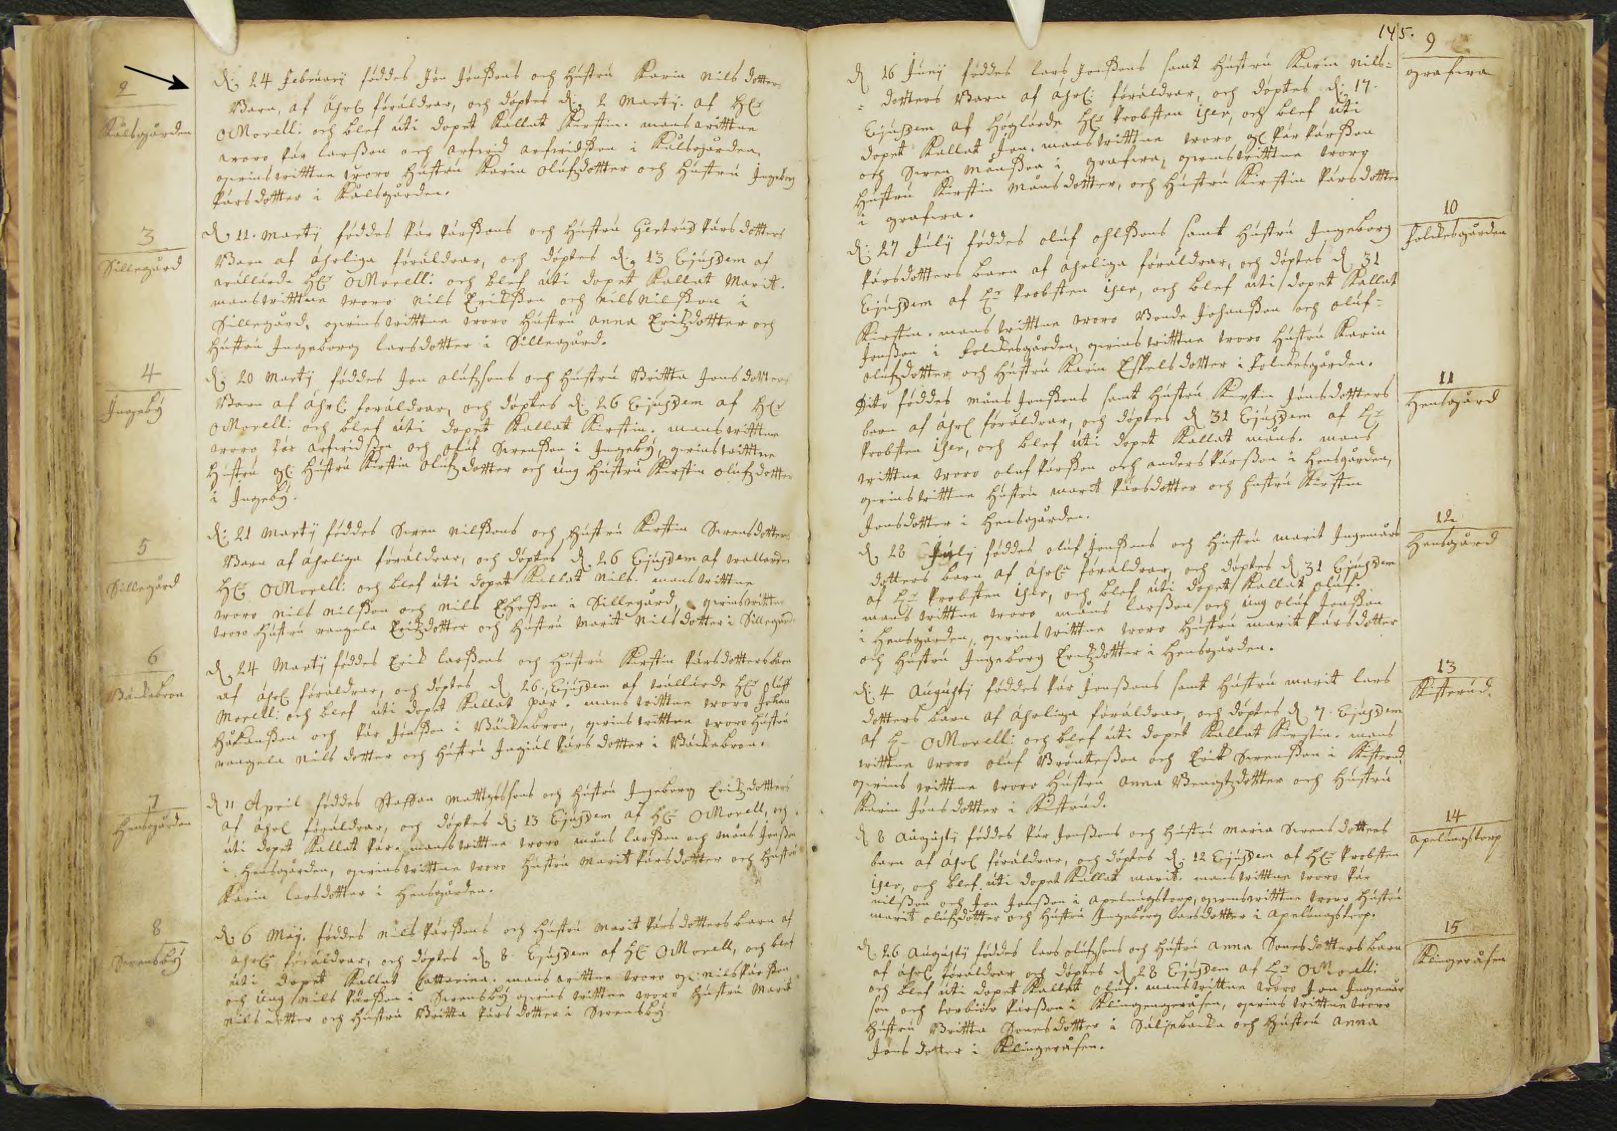 2
Kålsgården
d. 24 Februarij föddes Jon Jonßons och hustru Karin Nils dotters
Barn, af Ährl: föräldrar, och döptes d. 2 Martij. af Hr
OMorell: och blef uti dopet kallat Kirstin. manswittne
woro Pär Larßon och Arfwid Arfwidßon i Kålsgården,
qwinswittne woro hustru Karin Olufzdotter och hustru Ingeborg
Pärsdotter i Kålsgården.
3
Sillegård
d. 11. Martij föddes Pär Pärßons och hustru Giertrud Pärs dotters
Barn af ährliga föräldrar, och döptes d. 13 Ejusdem af
wällärde Hr OMorell: och blef uti dopet kallat Marit.
manswittne woro Nils Erikßon och Nils Nilßon i
Sillegård, qwinswittne woro hustru Anna Erikzdotter och
hustru Ingeborg Larsdotter i Sillegård.
4
Ingeby
d. 20 Martij föddes Jon Olufsons och hustru Britta Jonsdotters
Barn af Ährl: föräldrar, och döptes d. 26 Ejusdem af Hr
OMorell: och blef uti dopet kallat Kirstin. manswittne
woro Pär Arfwidßon och Oluf Swenßon i Ingeby, qwinswittne
hustru gl: hustru Kirstin Olufzdotter och ung hustru Kirstin Olufzdotter
i Ingeby.
5
Sillegård
d. 21 Martij föddes Swen Nilßons och hustru Kirstin Swensdotters
Barn af ährliga föräldrar, och döptes d. 26 Ejusdem af wällärde
Hr OMorell: och blef uti dopet kallat Nils. manswittne
woro Nils Nilßon och Nils i Sillegård, qwinswittne
woro hustru Rangela Erikzdotter och hustru Marit Nilsdotter i Sillegård
6
Bäckebron
d. 24 Martij föddes Erik Larßons och hustru Kirstin Pärsdotters barn
af Ährl: föräldrar, och döptes d. 26. Ejusdem af wällärde Hr Oluff
Morell: och blef uti dopet kallat Pär. manswittne woro Johan
Håkanßon och Pär Jonßon i Bäckebron, qwinswittne woro hustru
Rangela Nils dotter och hustru Pärs dotter i Bäckebron.
7
Hensgården
d 11 April föddes Staffan Mattzssons och hustru Ingeborg Erikzdotters
af ährl: föräldrar, och döptes d. 13 Ejusdem af Hr OMorell, och
uti dopet kallat Pär. manswittne woro Måns Larßon och Måns Jonßon
i Hensgården, qwinswittne woro hustru Marit Pärsdotter och hustru
Karin Larsdotter i Hensgården.
8
Swensby
d. 6 Maij. föddes Nils Pärßons och hustru Marit Pärsdotters barn af
ährl: föräldrar, och döptes d 8 Ejusdem af Hr OMorell, och blef
uti dopet kallat Catterina. manswittne woro gl: Nils Pärßon
och ung Nils Pärßon i Swensby qwinswittne woro hustru Marit
Nils dotter och hustru Britta Pärsdotter i Swensby.
145.
9
Grafwra
d 16 Junij föddes Lars Jonßons samt hustru Karin Nils=
=dotters Barn af ährl: föräldrar, och döptes d. 17.
Ejusdem af Höglärde Hr Probsten Iser, och blef uti
dopet kallat Jon. manswittne woro gl: Pär Pärßon
och Swen Månßon i Grafwra, qwinswittne woro
hustru Kirstin Månsdotter, och hustru Kirstin Pärsdotter
i Grafwra.
10
Folckesgården
d. 27 Julij föddes Oluf Ohlßons samt hustru Ingeborg
Pärsdotters barn af ährliga föräldrar, och döptes d. 31
Ejusdem af Hr Probsten Iser, och blef uti dopet kallat
Kirstin. manswittne woro Bonde Johanßon och Oluf=
Jonßon i Folckesgården qwinswittne woro hustru Karin
Olufzdotter och hustru Karin Eskelsdotter i Folckesgården.
11
Hensgård
Dito föddes Måns Jonßons samt hustru Kirstin Jonsdotters
barn af ährl: föräldrar, och döptes d 31 Ejusdem af Hr
Probsten Iser, och blef uti dopet kallat Måns. mans
wittne woro Oluf Pärßon och Anders Pärßon i Hensgården,
qwinswittne hustru Marit Pärsdotter och hustru Kirstin
Jonsdotter i Hensgården.
12
Hensgård
d. 28 Julij föddes Oluf Jonßons och hustru Marit Ingemars
dotters barn af ährl: föräldrar, och döptes d 31 Ejusdem
af Hr Probsten Iser, och blef uti dopet kallat Oluf.
mans wittne woro Måns Larßon och ung Oluf Jonßon
i Hensgården, qwinswittne woro hustru Marit Pärsdotter
och hustru Ingeborg Erikzdotter i Hensgården.
13
Kisterud.
d. 4 Augustij föddes Pär Jonßons samt hustru Marit Lars
dotters barn af ährliga föräldrar, och döptes d 7. Ejusdem
af Hr OMorell: och blef uti dopet kallat Kirstin. mans
wittne woro Oluf Bryntesson och Erik Swenßon i Kisterud
qwins wittne woro hustru Anna Bengtzdotter och hustru
Karin Jonsdotter i Kisterud.
14
Apelungstorp
d 8 Augustij föddes Pär Jonßons och hustru Maria Swens dotters
barn af ährl: föräldrar, och döptes d. 12 Ejusdem af Hr Probsten
Iser, och blef uti dopet kallat Marit. manswittne woro Pär
Nilßon och Jon Jonßon i Apelungstorp, qwinswittne woro hustru
Marit Olufzdotter och hustru Ingeborg Larsdotter i Apelungstorp.
15
Klingeråsen
d. 26 Augustij föddes Lars Olufsons och hustru Anna Jonsdotters barn
af ährl: föräldrar och döptes d 28 Ejusdem af Hr OMorell:
och blef uti dopet kallat Oluf. manswittne woro Jon Ingemar
son och Torbiör Pärßon i Klingeråsen, qwins wittne woro
hustru Britta Jonsdotter i Säljebacka och hustru Anna
Jons dotter i Klingeråsen.